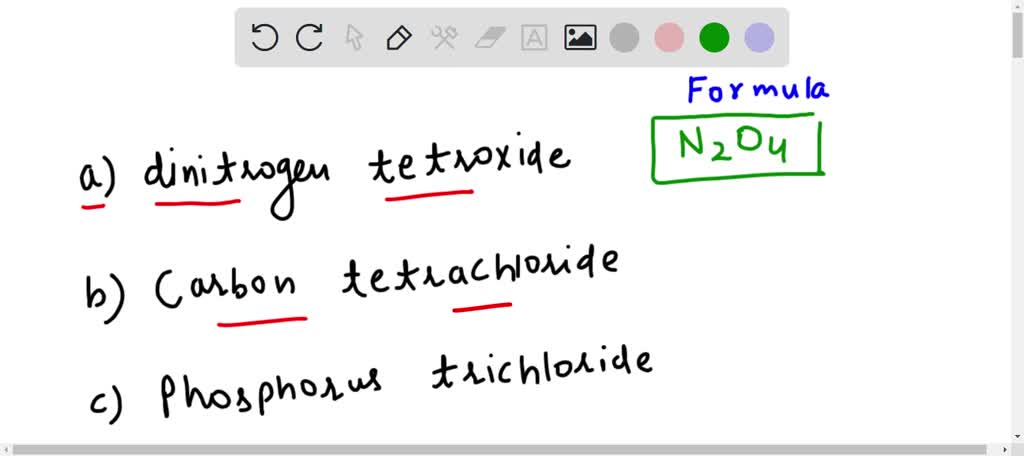 Formula
a) dinitrogen tetroxide N₂O₄
b) Carbon tetrachloride
c) Phosphorus trichloride